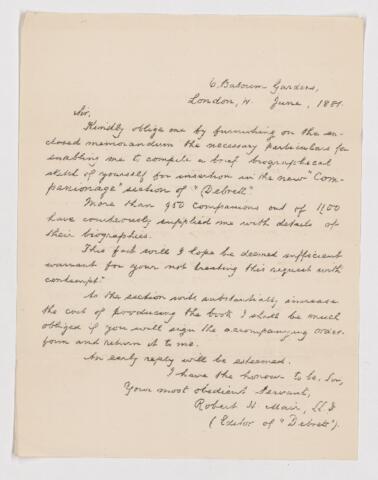 6. Batoum Gardens,
London, W. June, 1881.
Sir,
Kindly oblige me by furnishing on the en-
closed memorandum the necessary particulars for
enabling me to compile a brief biographical
sketch of yourself for insertion in the new "Com-
panionage" section of "Debrett"
More than 950 Companions out of 1150
have courteously supplied me with details of
their biographies.
This fact will I hope be deemed sufficient
warrant for your not treating this request with
contempt.
As the section will substantially increase
the cost of producing the book I shall be much
obliged if you will sign the accompanying order-
form and return it to me.
An early reply will be esteemed.
I have the honour to be, Sir,
Your most obedient Servant,
Robert H. Mair, LL.D
(Editor of "Debrett").